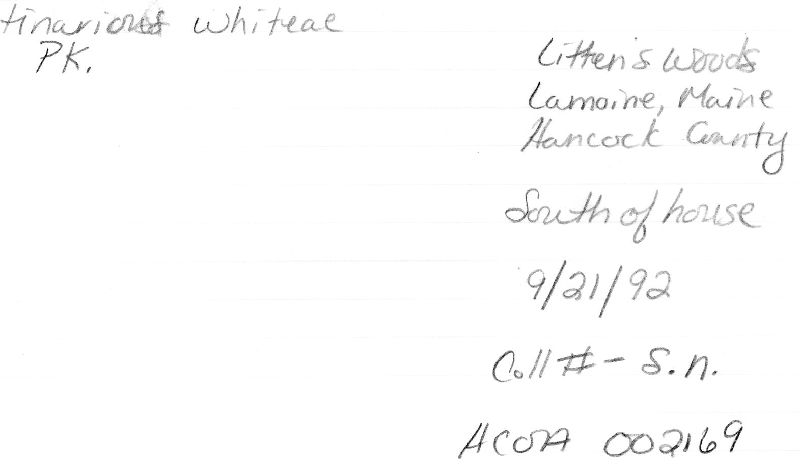 whiteae
PK.
Litten's Woods
Lamoine, Maine
Hancock County
South of house
9/21/92
Coll # - S.n.
ACOA 002169